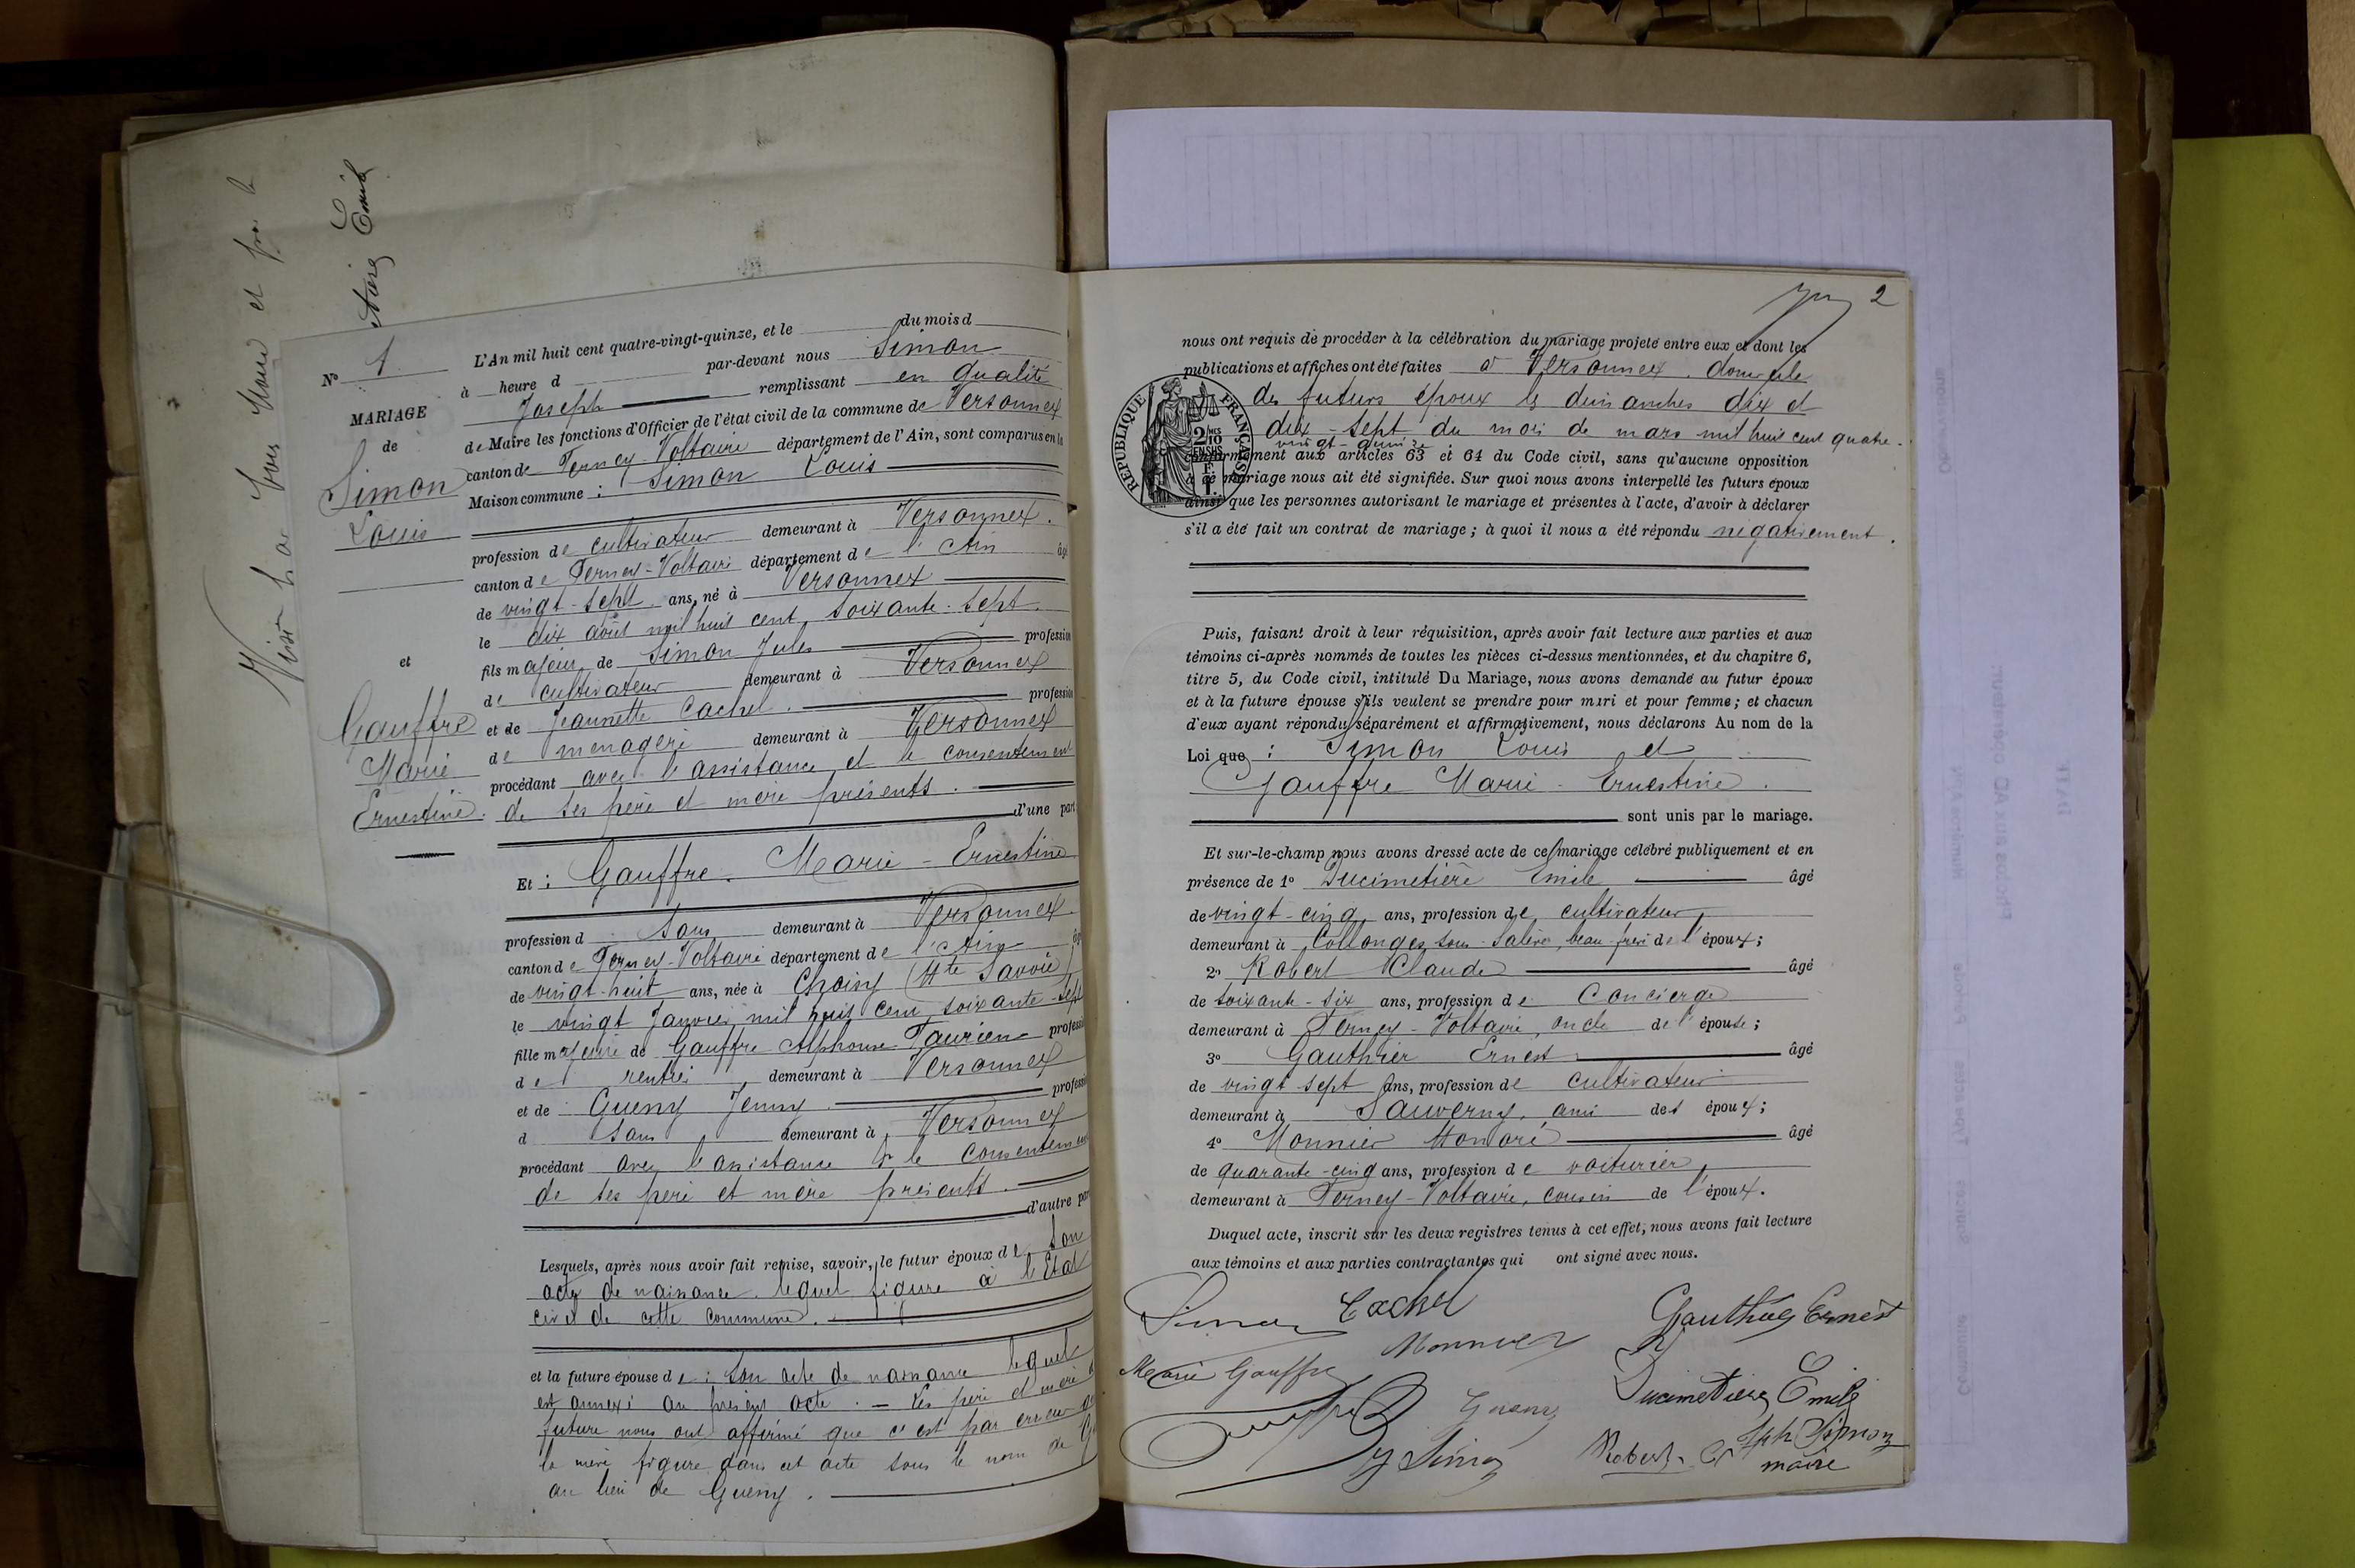 Nº 1
MARIAGE
de
Simon
Louis
et
Gauffre
Marie
Ernestine.
L'An mil huit cent quatre-vingt-quinze, et le du mois d
à heure d par-devant nous Simon
Joseph remplissant en qualité
de Maire les fonctions d'Officier de l'état civil de la commune de Versonnex
canton de Ferney-Voltaire département de l'Ain, sont comparus en la
Maison commune : Simon Louis
profession de cultivateur demeurant à Versonnex.
canton de Ferney-Voltaire département de l'Ain âgé
de vingt-sept ans, né à Versonnex
le dix août mil huit cent soixante-sept.
fils majeur de Simon Jules profession
de cultivateur demeurant à Versonnex
et de Jeannette Cachel. profession
de menagère demeurant à Versonnex
procédant avec l'assistance et le consentement
de ses père et mère présents.
d'une part
Et : Gauffre. Marie-Ernestine
profession d sans demeurant à Versonnex.
canton de Ferney-Voltaire département de l'Ain
de vingt-huit ans, née à Choisy (Hte Savoie)
le vingt Janvier mil huit cent soixante-sept
fille majeure de Gauffre Alphonse Taurien profession
de rentier demeurant à Versonnex
et de Gueny Jenny profession
d sans demeurant à Versonnex
procédant avec l'assistance et le consentement
de ses père et mère présents.
d'autre part
Lesquels, après nous avoir fait remise, savoir, le futur époux de son
acte de naissance lequel figure à l'Etat
civil de cette commune.
et la future épouse de : son acte de naissance lequel
est annexé au présent acte. — Les père et mère
future nous ont affirmé que c'est par erreur
la mère figure dans cet acte sous le nom de
au lieu de Gueny.
2
nous ont requis de procéder à la célébration du mariage projeté entre eux et dont les
publications et affiches ont été faites à Versonnex. domicile
des futurs époux les dimanches dix et
dix-sept du mois de mars mil huit cent quatre-
vingt-quinze
conformément aux articles 63 et 64 du Code civil, sans qu'aucune opposition
à ce mariage nous ait été signifiée. Sur quoi nous avons interpellé les futurs époux
ainsi que les personnes autorisant le mariage et présentes à l'acte, d'avoir à déclarer
s'il a été fait un contrat de mariage ; à quoi il nous a été répondu négativement.
RÉPUBLIQUE FRANÇAISE
2/10
EN SUS
Puis, faisant droit à leur réquisition, après avoir fait lecture aux parties et aux
témoins ci-après nommés de toutes les pièces ci-dessus mentionnées, et du chapitre 6,
titre 5, du Code civil, intitulé Du Mariage, nous avons demandé au futur époux
et à la future épouse s'ils veulent se prendre pour mari et pour femme ; et chacun
d'eux ayant répondu séparément et affirmativement, nous déclarons Au nom de la
Loi que : Simon Louis et
Gauffre Marie-Ernestine.
sont unis par le mariage.
Et sur-le-champ nous avons dressé acte de ce mariage célébré publiquement et en
présence de 1º Ducimetière Emile âgé
de vingt-cinq ans, profession de cultivateur,
demeurant à Collonges sous Salève, beau-frère de l'époux ;
2º Robert Claude âgé
de soixante-six ans, profession de Concierge
demeurant à Ferney-Voltaire, oncle de l'épouse ;
3º Gauthier Ernest âgé
de vingt-sept ans, profession de cultivateur
demeurant à Sauverny, ami des époux ;
4º Monnier Honoré âgé
de quarante-cinq ans, profession de voiturier,
demeurant à Ferney-Voltaire, cousin de l'époux.
Duquel acte, inscrit sur les deux registres tenus à cet effet, nous avons fait lecture
aux témoins et aux parties contractantes qui ont signé avec nous.
Simon Cachel Gauthier Ernest
Monnier
Marie Gauffre Ducimetière Emile
Gueny
J Simon Robert Cl Jph Simon
maire